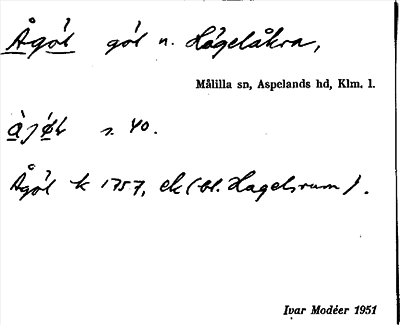 Ågöl göl n. Högelåkra,
Målilla sn, Aspelands hd, Klm. l.
s. 40.
Ågöl k 1757, ek (bl. Hagelsrum).
Ivar Modéer 1951